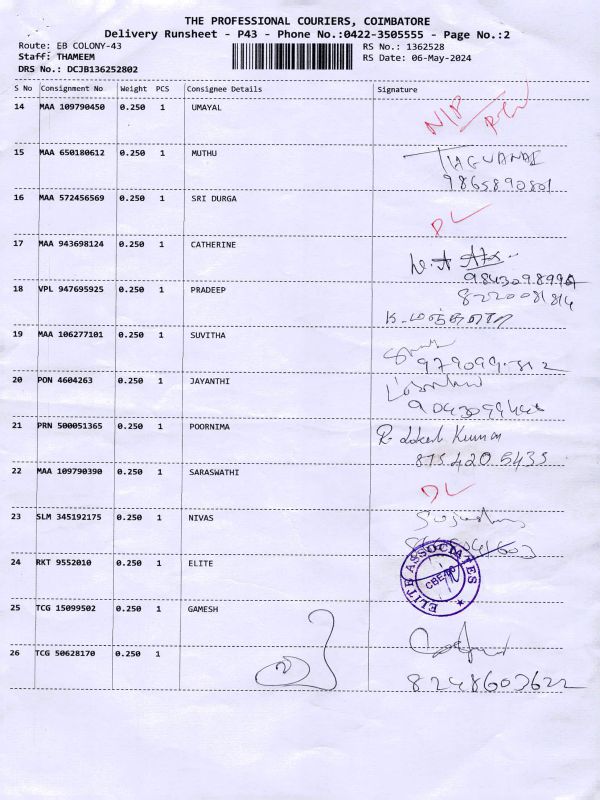 THE PROFESSIONAL COURIERS, COIMBATORE
Delivery Runsheet - P43 - Phone No.:0422-3505555 - Page No.:2
Route: EB COLONY-43 RS No.: 1362528
Staff: THAMEEM RS Date: 06-May-2024
DRS No.: DCJB136252802
S No Consignment No Weight PCS Consignee Details Signature
14 MAA 109790450 0.250 1 UMAYAL
N/P
15 MAA 650180612 0.250 1 MUTHU
9865890801
16 MAA 572456569 0.250 1 SRI DURGA
DL
17 MAA 943698124 0.250 1 CATHERINE
18 VPL 947695925 0.250 1 PRADEEP
8220081814
19 MAA 106277101 0.250 1 SUVITHA
20 PON 4604263 0.250 1 JAYANTHI
21 PRN 500051365 0.250 1 POORNIMA R. Lokesh Kumar
875420 5435
22 MAA 109790390 0.250 1 SARASWATHI
DL
23 SLM 345192175 0.250 1 NIVAS
24 RKT 9552010 0.250 1 ELITE
ELITE ASSOCIATES
25 TCG 15099502 0.250 1 GAMESH
26 TCG 50628170 0.250 1
8248603622